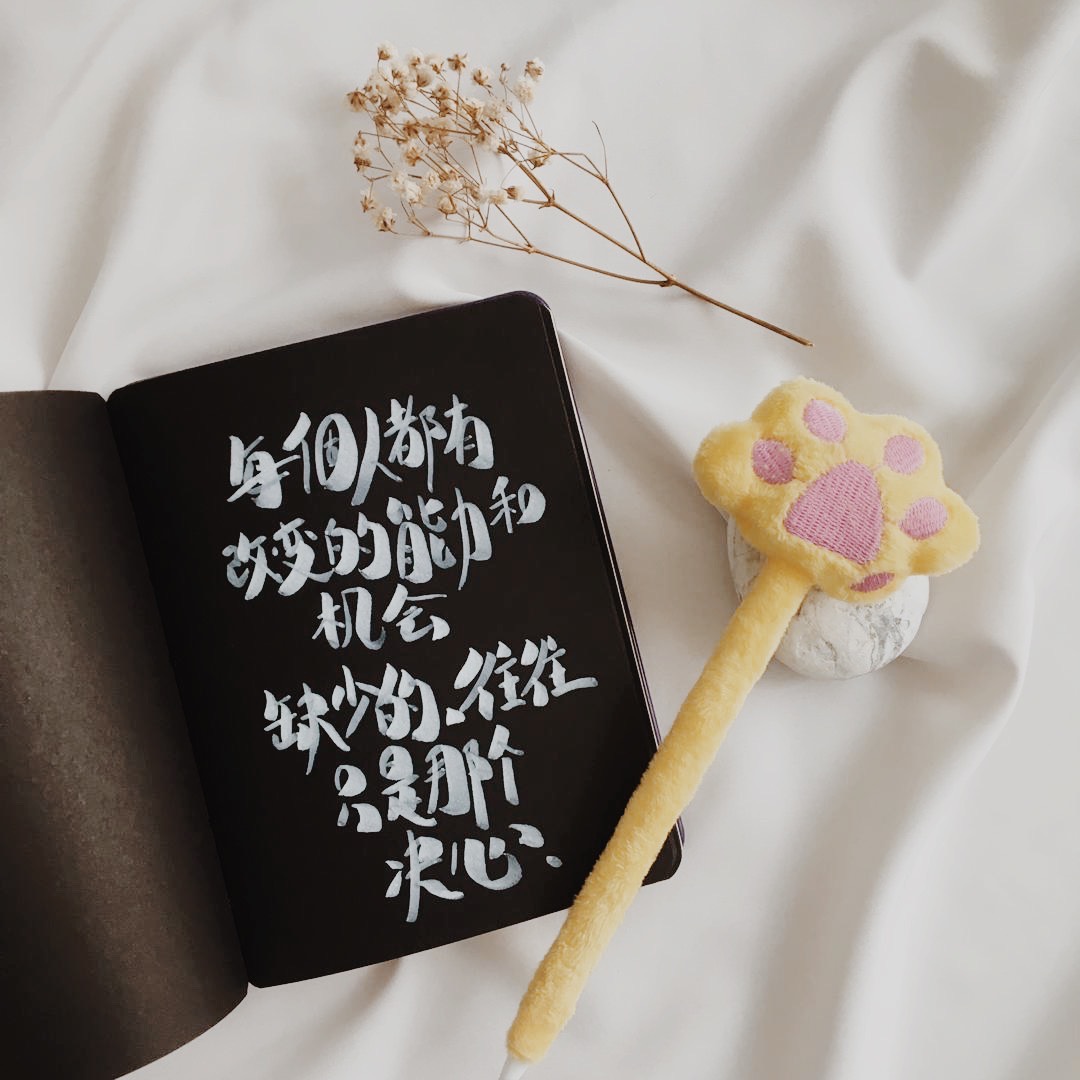 每個人都有
改变的能力和
机会
缺少的.往往
只是那个
决心.